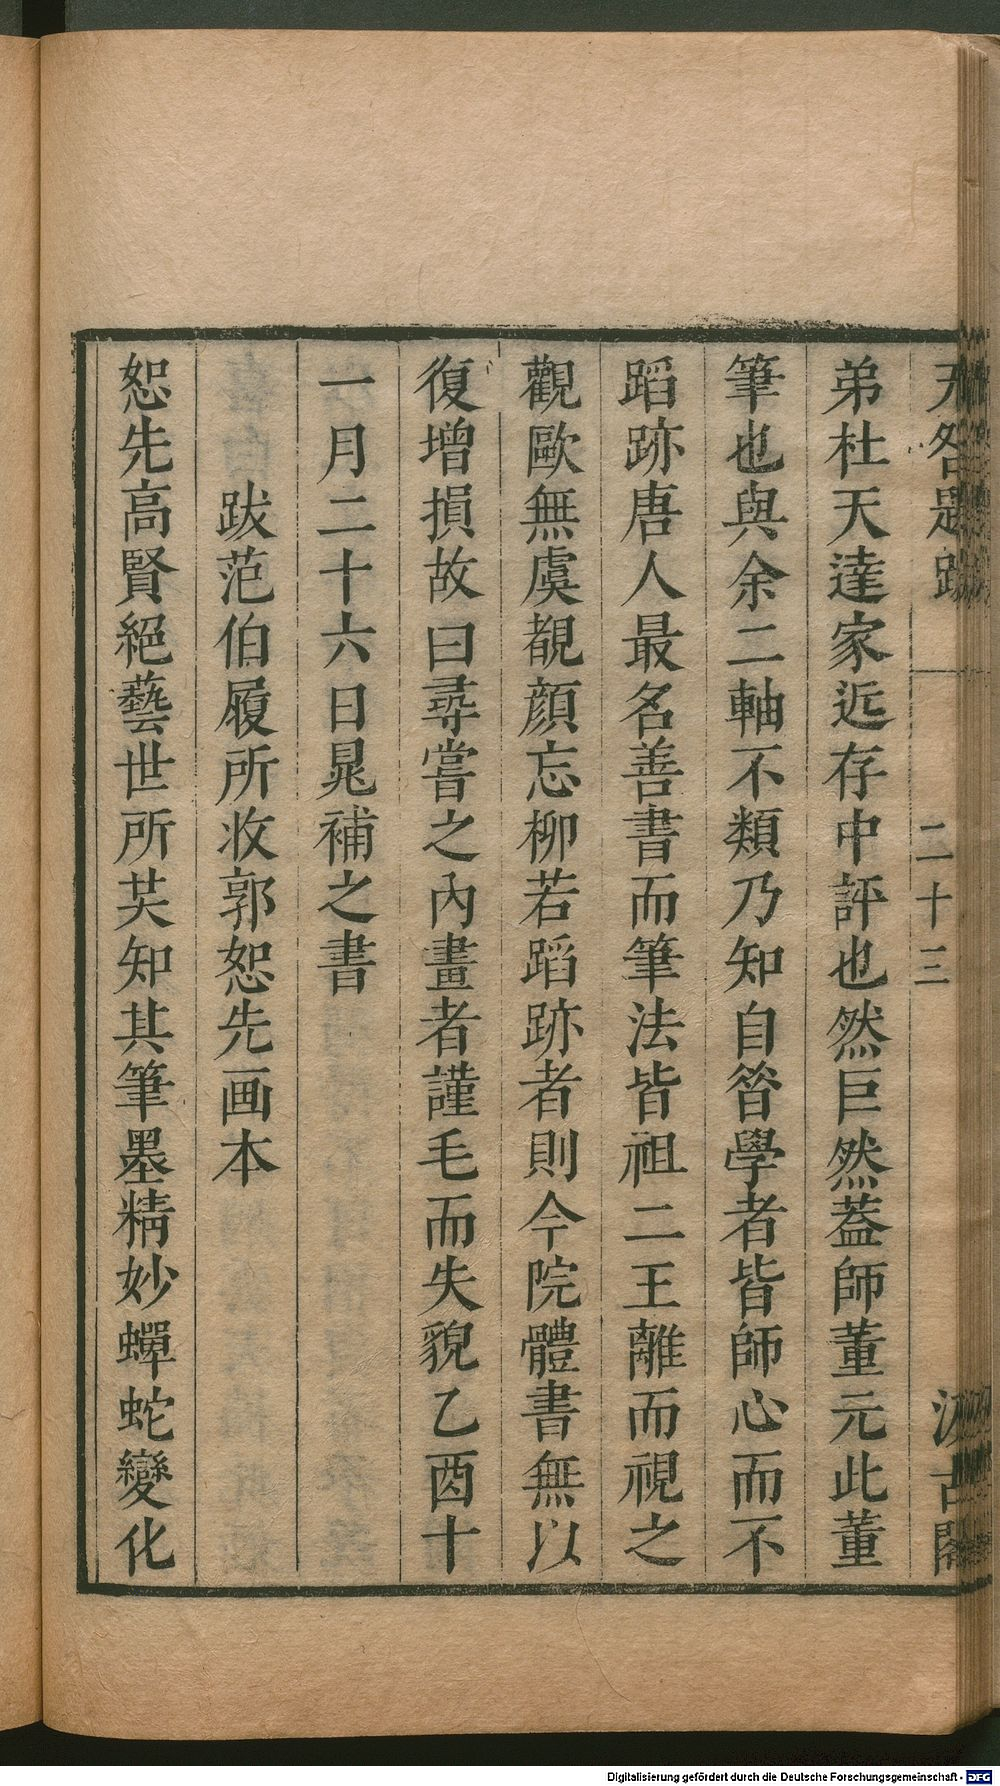 无咎題跋 二十三 汲古閣
弟杜天達家近存中評也然巨然蓋師董元此董
筆也與余二軸不類乃知自昝學者皆師心而不
蹈跡唐人最名善書而筆法皆祖二王離而視之
觀歐無虞覩顔忘柳若蹈跡者則今院體書無以
復增損故曰尋嘗之內畫者謹毛而失貌乙酉十
一月二十六日晁補之書
跋范伯履所收郭恕先画本
恕先高賢絕藝世所共知其筆墨精妙蟬蛇變化
Digitalisierung gefördert durch die Deutsche Forschungsgemeinschaft - DFG